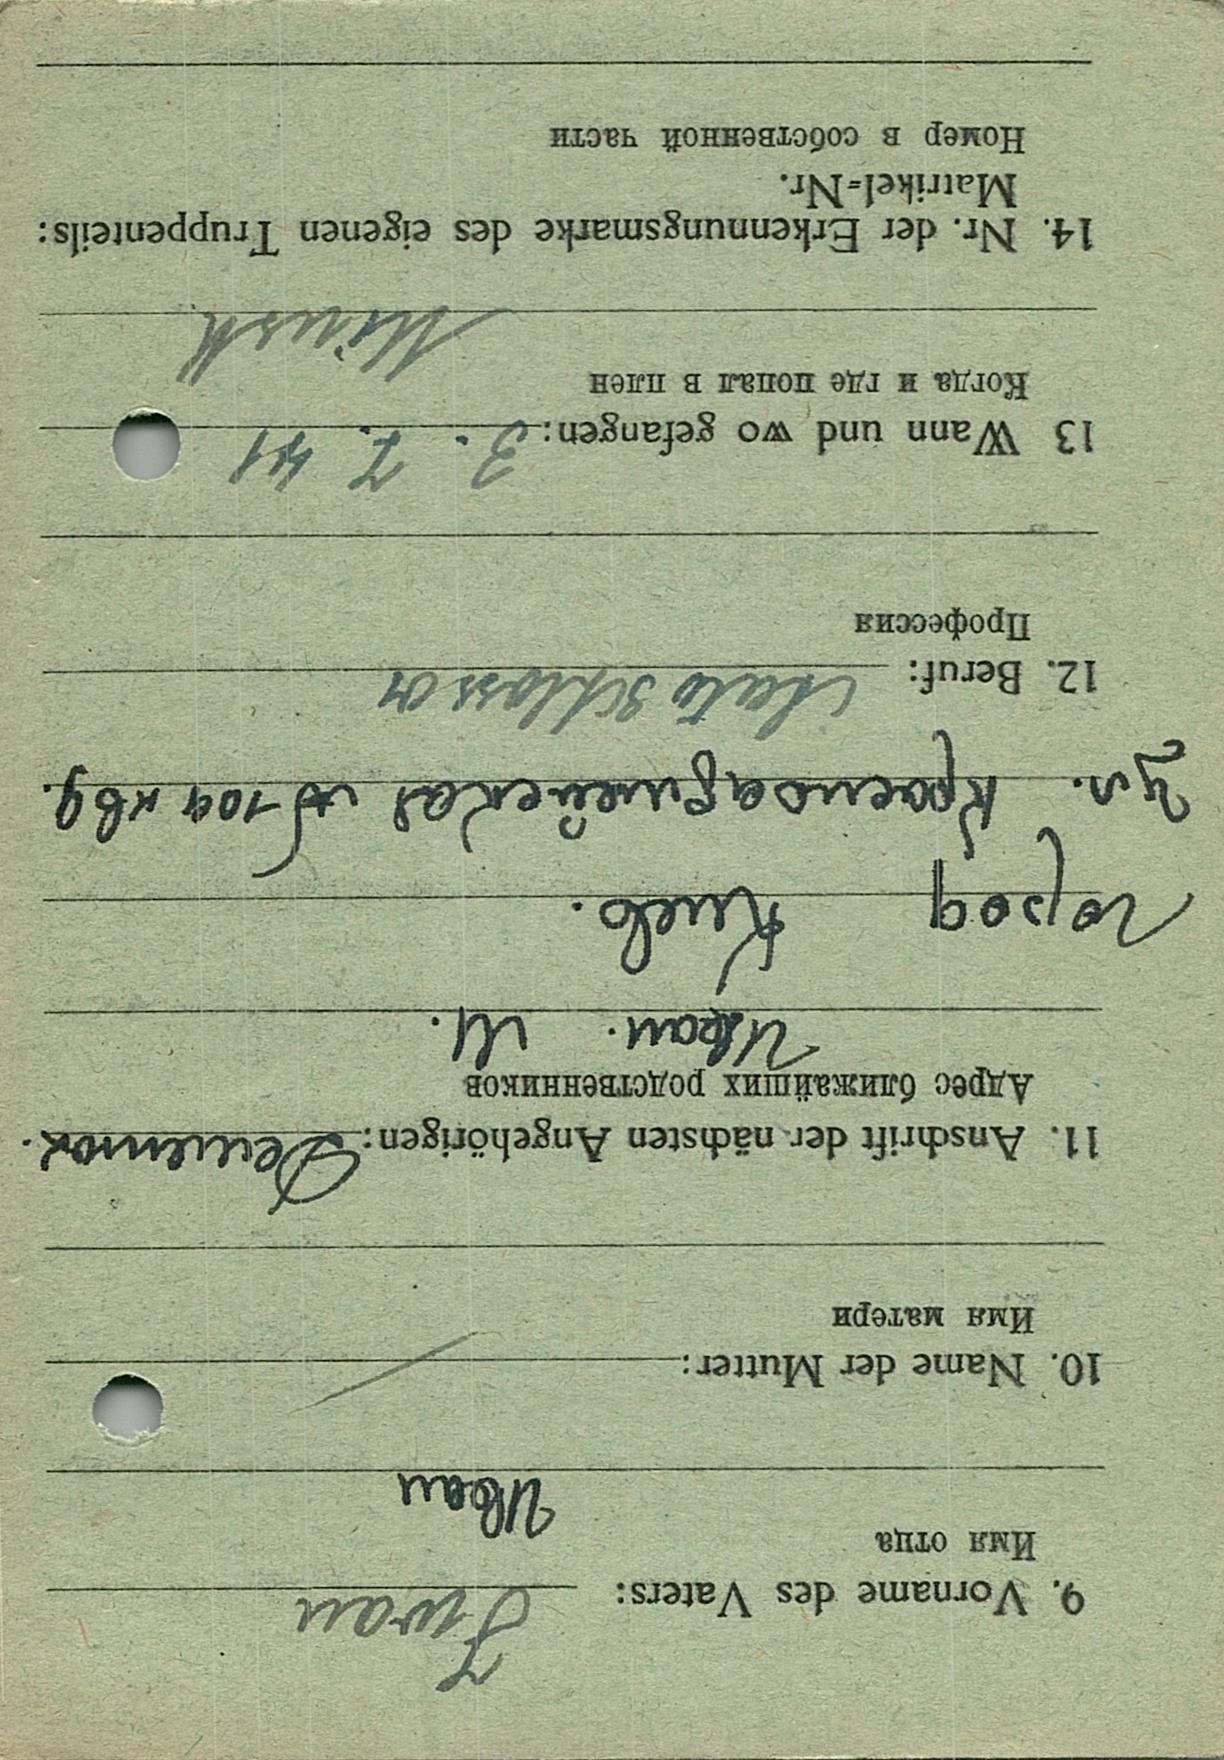 9. Vorname des Vaters: Iwan
Имя отца
Иван
10. Name der Mutter: /
Имя матери
11. Anschrift der nächsten Angehörigen:
Адрес ближайших родственников
Иван. М.
город Киев.
ул. Красноармейская № 109 кв 9.
12. Beruf: Autoschlosser
Профессия
13 Wann und wo gefangen: 3. 7. 41
Когда и где попал в плен
Minsk
14. Nr. der Erkennungsmarke des eigenen Truppenteils:
Matrikel-Nr.
Номер в собственной части